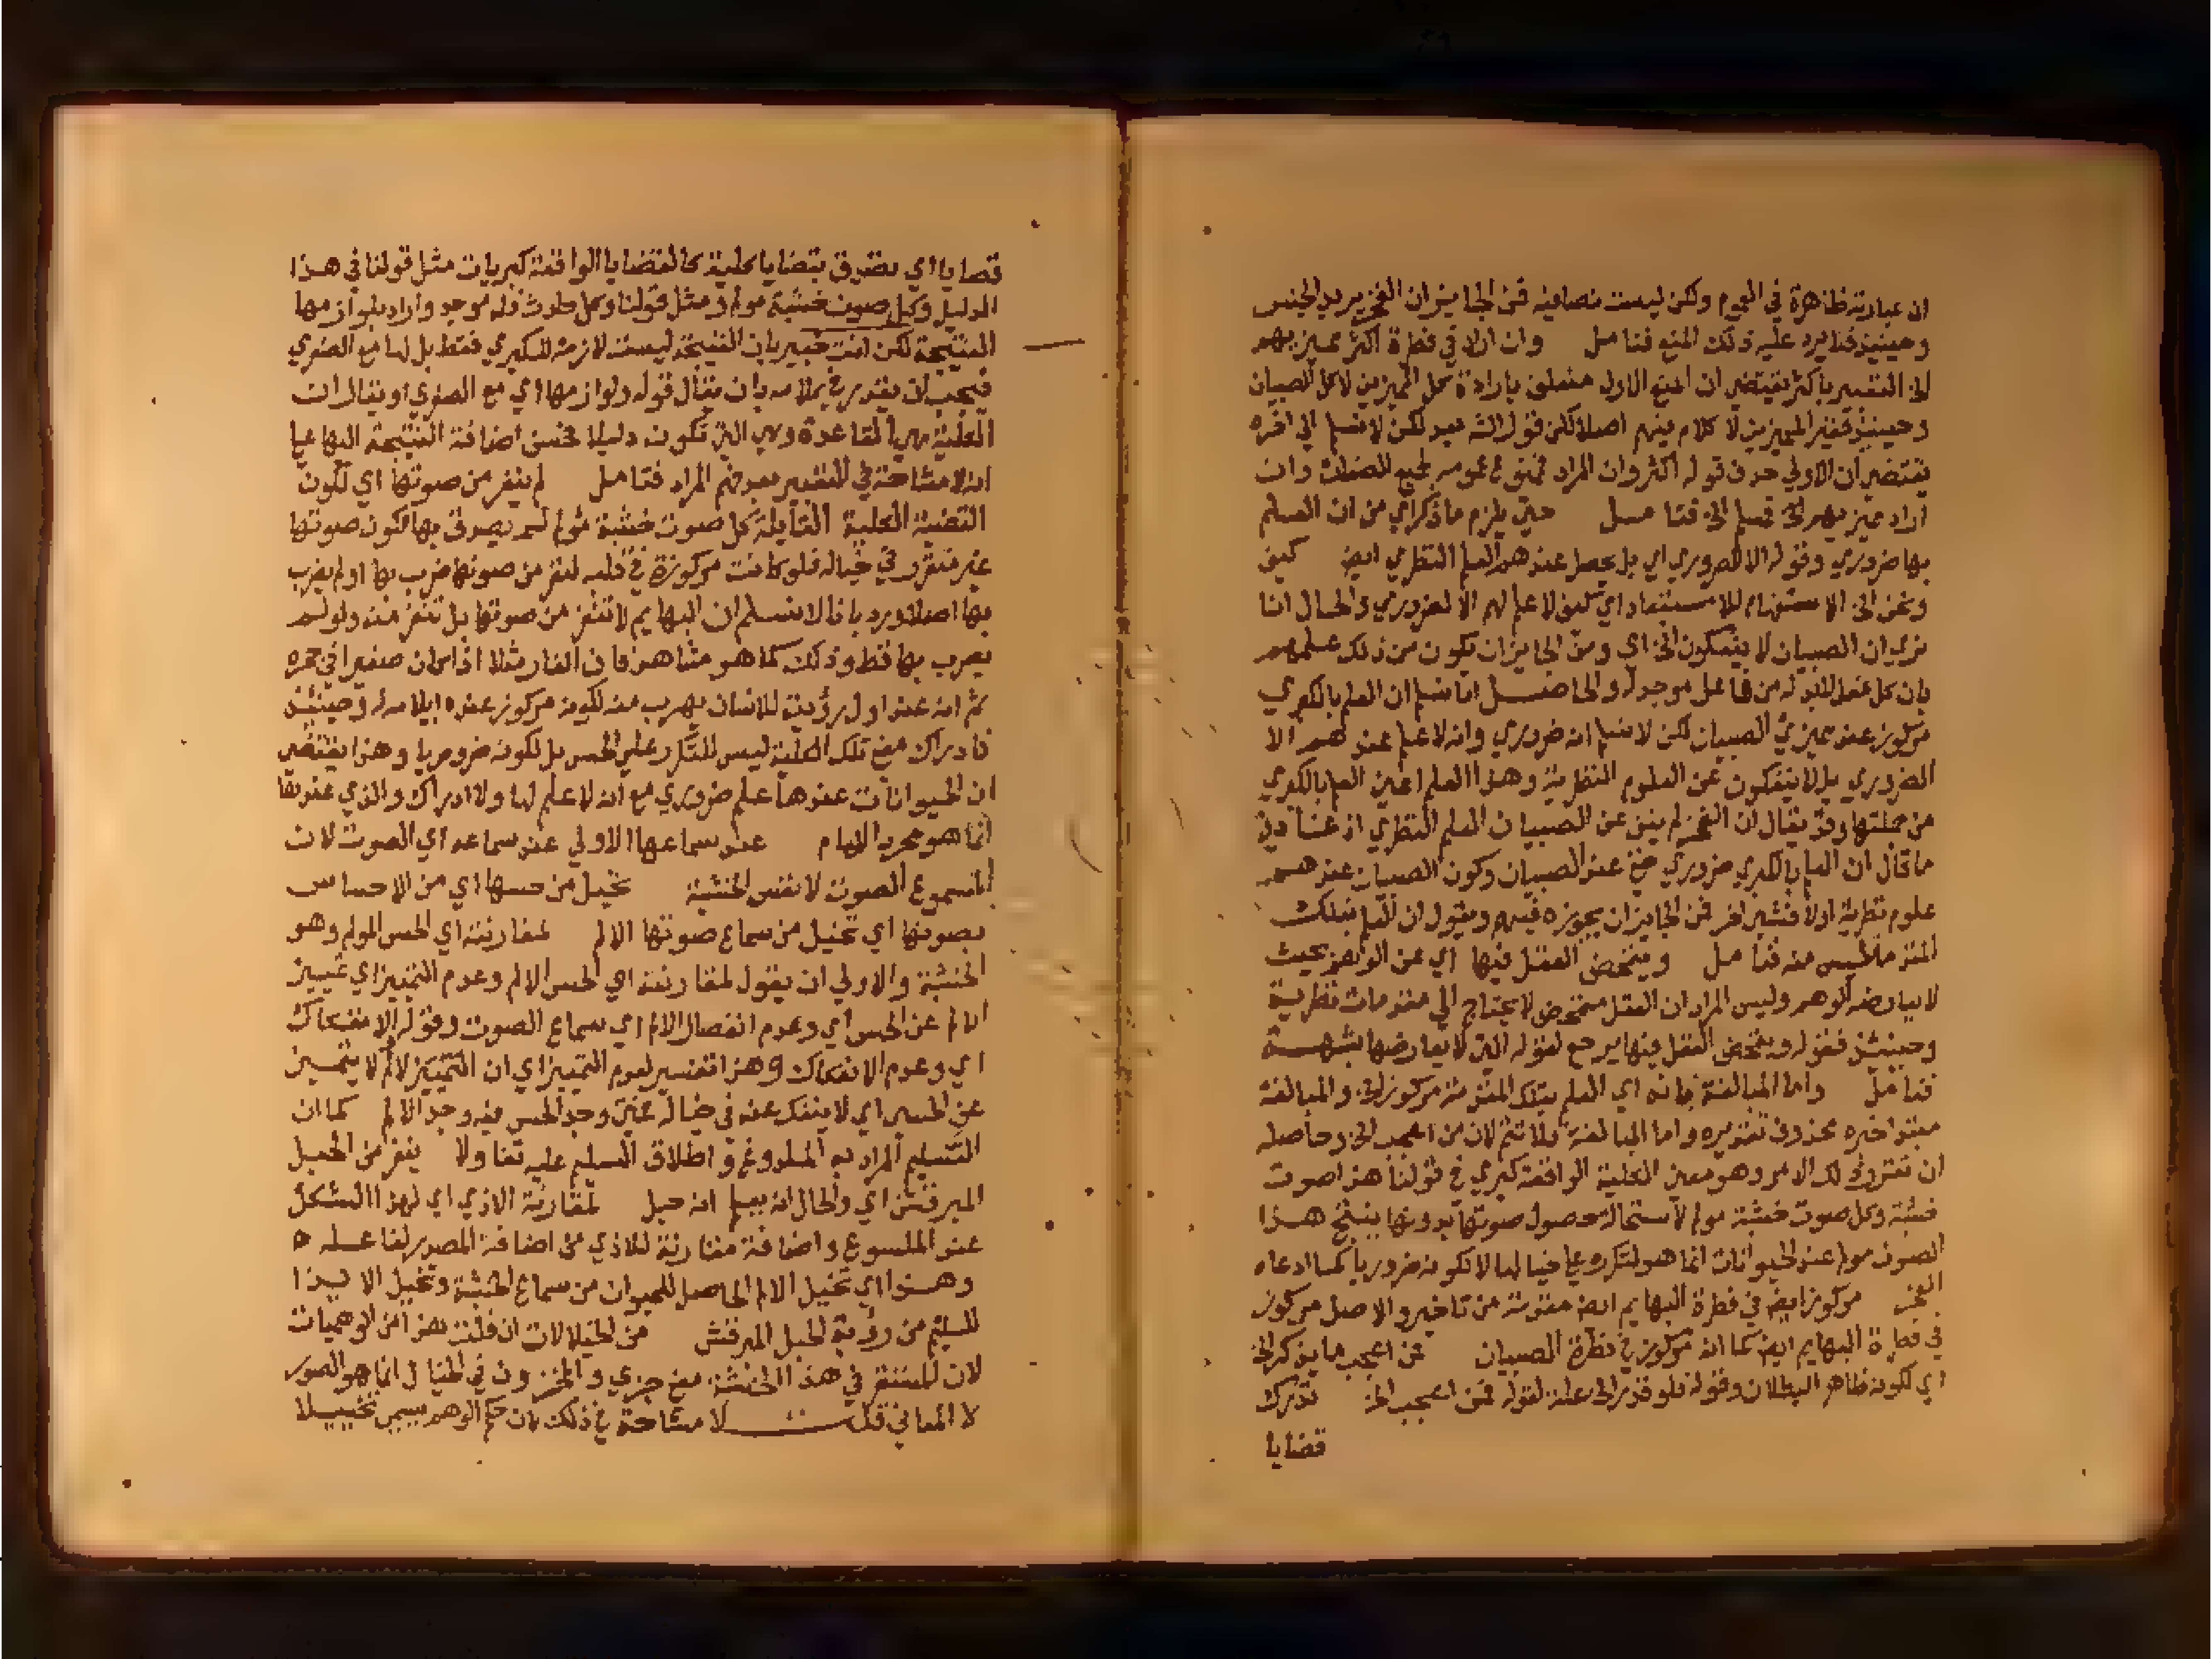 ان عبارته ظاهرة في العموم ولكن ليست نصا فيه فمن الجايز ان الفخر يريد الجنس
وحينيذ فلا يرد عليه ذلك المنع فتامل وان اراد في فطرة اكثر مميزيهم
الخ التعبير باكثر يقتضي ان المنع الاول متعلق بارادة كل المميزين لا كل الصبيان
وحينيذ فغير المميزين لا كلام فيهم اصلا لكن قول الش بعد لكن لا نسلم الى اخره
يقتضي ان الاولى حذف قوله اكثر وان المراد
اراد مميزيهم الخ فتامل حتى يلزم ما ذكر اي من ان العلم
بها ضروري وقوله الا الضروري اي بل يحصل عندهم العلم النظري ايض كيف
ونحن الخ الاستفهام للاستبعاد اي كيف لا علم لهم الا الضروري والحال اننا
نرى ان الصبيان لا ينفكون الخ اي ومن الجايز ان يكون من ذلك علمهم
بان كل فعل لابد له من فاعل موجد له والحاصل اننا نسلم ان العلم بالكبري
مركوز عند مميزي الصبيان لكن لا نسلم انه ضروري وانه لا علم عندهم الا
الضروري بل لا ينفكون عن العلوم النظرية وهذا العلم اعني العلم بالكبري
من جملتها وقد يقال ان الفخر لم ينف عن الصبيان العلم النظري اذ غاية
ما قال ان العلم بالكبري ضروري عند الصبيان وكون الصبيان عندهم
علوم نظرية او لا فشي اخر فمن الجايز ان يجوزه فيهم ويقول ان العلم بتلك
المقدمة ليس منه فتامل ويتمحض العقل فيها اي عن الوهم بحيث
لا يعارضه الوهم وليس المراد ان العقل متمحض لا يحتاج الى مقدمات نظرية
وحينيذ فقوله ويتمحض العقل فيها يرجع لقوله التي لا يعارضها شبهة
فتامل واما المبالغة بانه اي العلم بتلك المقدمة مركوز الخ والمبالغة
مبتدا خبره محذوف تقديره واما المبالغة فلا تتم لان من اعجب الخ وحاصله
ان تقرر ذلك الامر وهو معنى الكلية الواقعة كبري في قولنا هذا صوت
خشبة وكل صوت خشبة مولم لاستحالة حصول صوتها بدونها ينتج هذا
الصوت مولم عند الحيوانات انما هو لتكرره على خيالها لا لكونه ضروريا كما ادعاه
الفخر مركوز ايض في فطرة البهايم ايض مقدمة من تاخير والاصل مركوز
في فطرة البهايم ايض كما انه مركوز في فطرة الصبيان من اعجب ما يذكر الخ
اي لكونه ظاهر البطلان وقوله فلو قدر الخ علة لقوله فمن اعجب الخ تدرك
قضايا
قضايا اي تصدق بقضايا كلية كالقضايا الواقعة كبريات مثل قولنا في هذا
الدليل وكل صوت خشبة مولم ومثل قولنا وكل حادث فله موجد واراد بلوازمها
النتيجة لكن انت خبير بان النتيجة ليست لازمة للكبري فقط بل لها مع الصغري
فيجب ان يقدر في كلامه بان يقال قوله ولوازمها اي مع الصغري او يقال ان
الكلية هي القاعدة وهي التي تكون دليلا فحسن اضافة النتيجة اليها على
انه لا مشاحة في التعبير بعد فهم المراد فتامل لم ينفر من صوتها اي لكون
القضية الكلية القايلة كل صوت خشبة مولم لم يصدق بها لكون صوتها
غير متقرر في خياله فلو كانت مركوزة في قلبه لنفر من صوتها ضرب بها او لم يضرب
بها اصلا ورد بانا لا نسلم ان البهايم لا تنفر من صوتها بل تنفر منه ولو لم
يضرب بها قط وذلك كما هو مشاهد فان الفار مثلا اذا كان صغيرا في حجره
ثم انه عند اول رؤيته للانسان يهرب منه لكونه مركوز عنده ايلامه له وحينيذ
فادراك معنى تلك الكلية ليس للتكرر على الحس بل لكونه ضروريا وهذا يقتضي
ان الحيوانات عندها علم ضروري مع انه لا علم لها ولا ادراك والذي عندها
انما هو مجرد الهام عند سماعها الاولى عند سماعه اي الصوت لان
المسموع الصوت لا نفس الخشبة تخيل من حسها اي من الاحساس
بصوتها اي تخيل من سماع صوتها الالم لمقارنته اي الحس المولم وهو
الخشبة والاولى ان يقول لمقارنة اي الحس الالم وعدم التمييز اي تمييز
الالم عن الحس اي وعدم انفصال الالم اي سماع الصوت وقوله الانفكاك
اي وعدم الانفكاك وهذا تفسير لعدم التمييز اي ان التمييز لالم لا يتميز
عن الحس اي لا ينفك عنه في خياله فمتى وجد الحس فيه وجد الالم كما ان
السليم المراد به الملدوغ واطلاق السليم عليه تفاولا ينفر من الحبل
المبرقش اي والحال انه يعلم انه حبل لمقارنة الاذي اي لهذا الشكل
عند الملسوع واضافة مقارنة للاذي من اضافة المصدر لفاعله
وهذا اي تخيل الالم الحاصل للحيوان من سماع الخشبة وتخيل الايذا
للسليم من رؤية الحبل المبرقش من الخيالات ان قلت هذا من الوهميات
لان المستقر في هذا الخشبة معنى جزي والمخزون في الخيال انما هو الصور
لا المعاني قلت لا مشاحة في ذلك لان حكم الوهم يسمى تخييلا